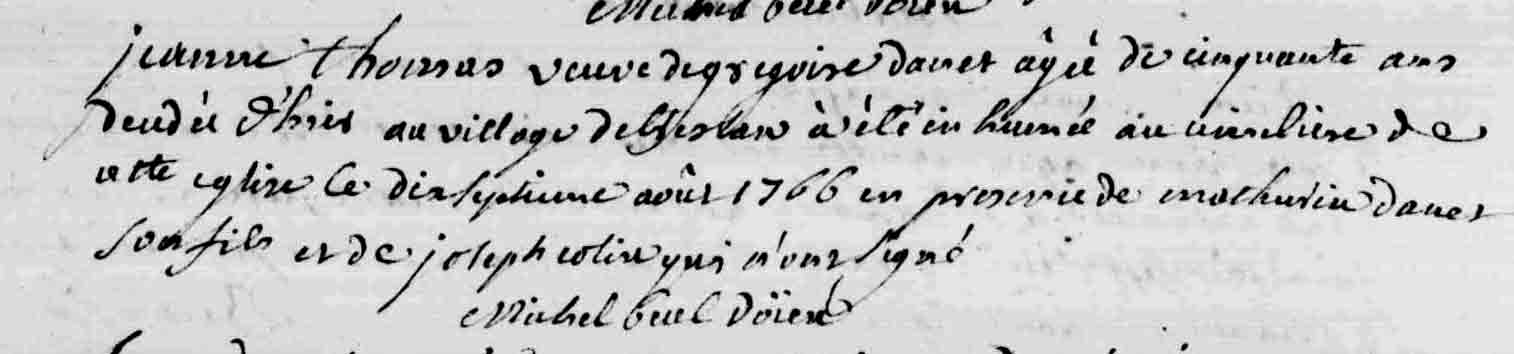 Michel Doïen
jeanne thomas veuve de gregoire danet âgée de cinquante ans
décédée d'hier au village de à été in humée au cimetiere de
cette eglise le dix septieme août 1766 en presence de mathurin danet
son fils et de joseph colin qui n'ont signé
Michel Doïen